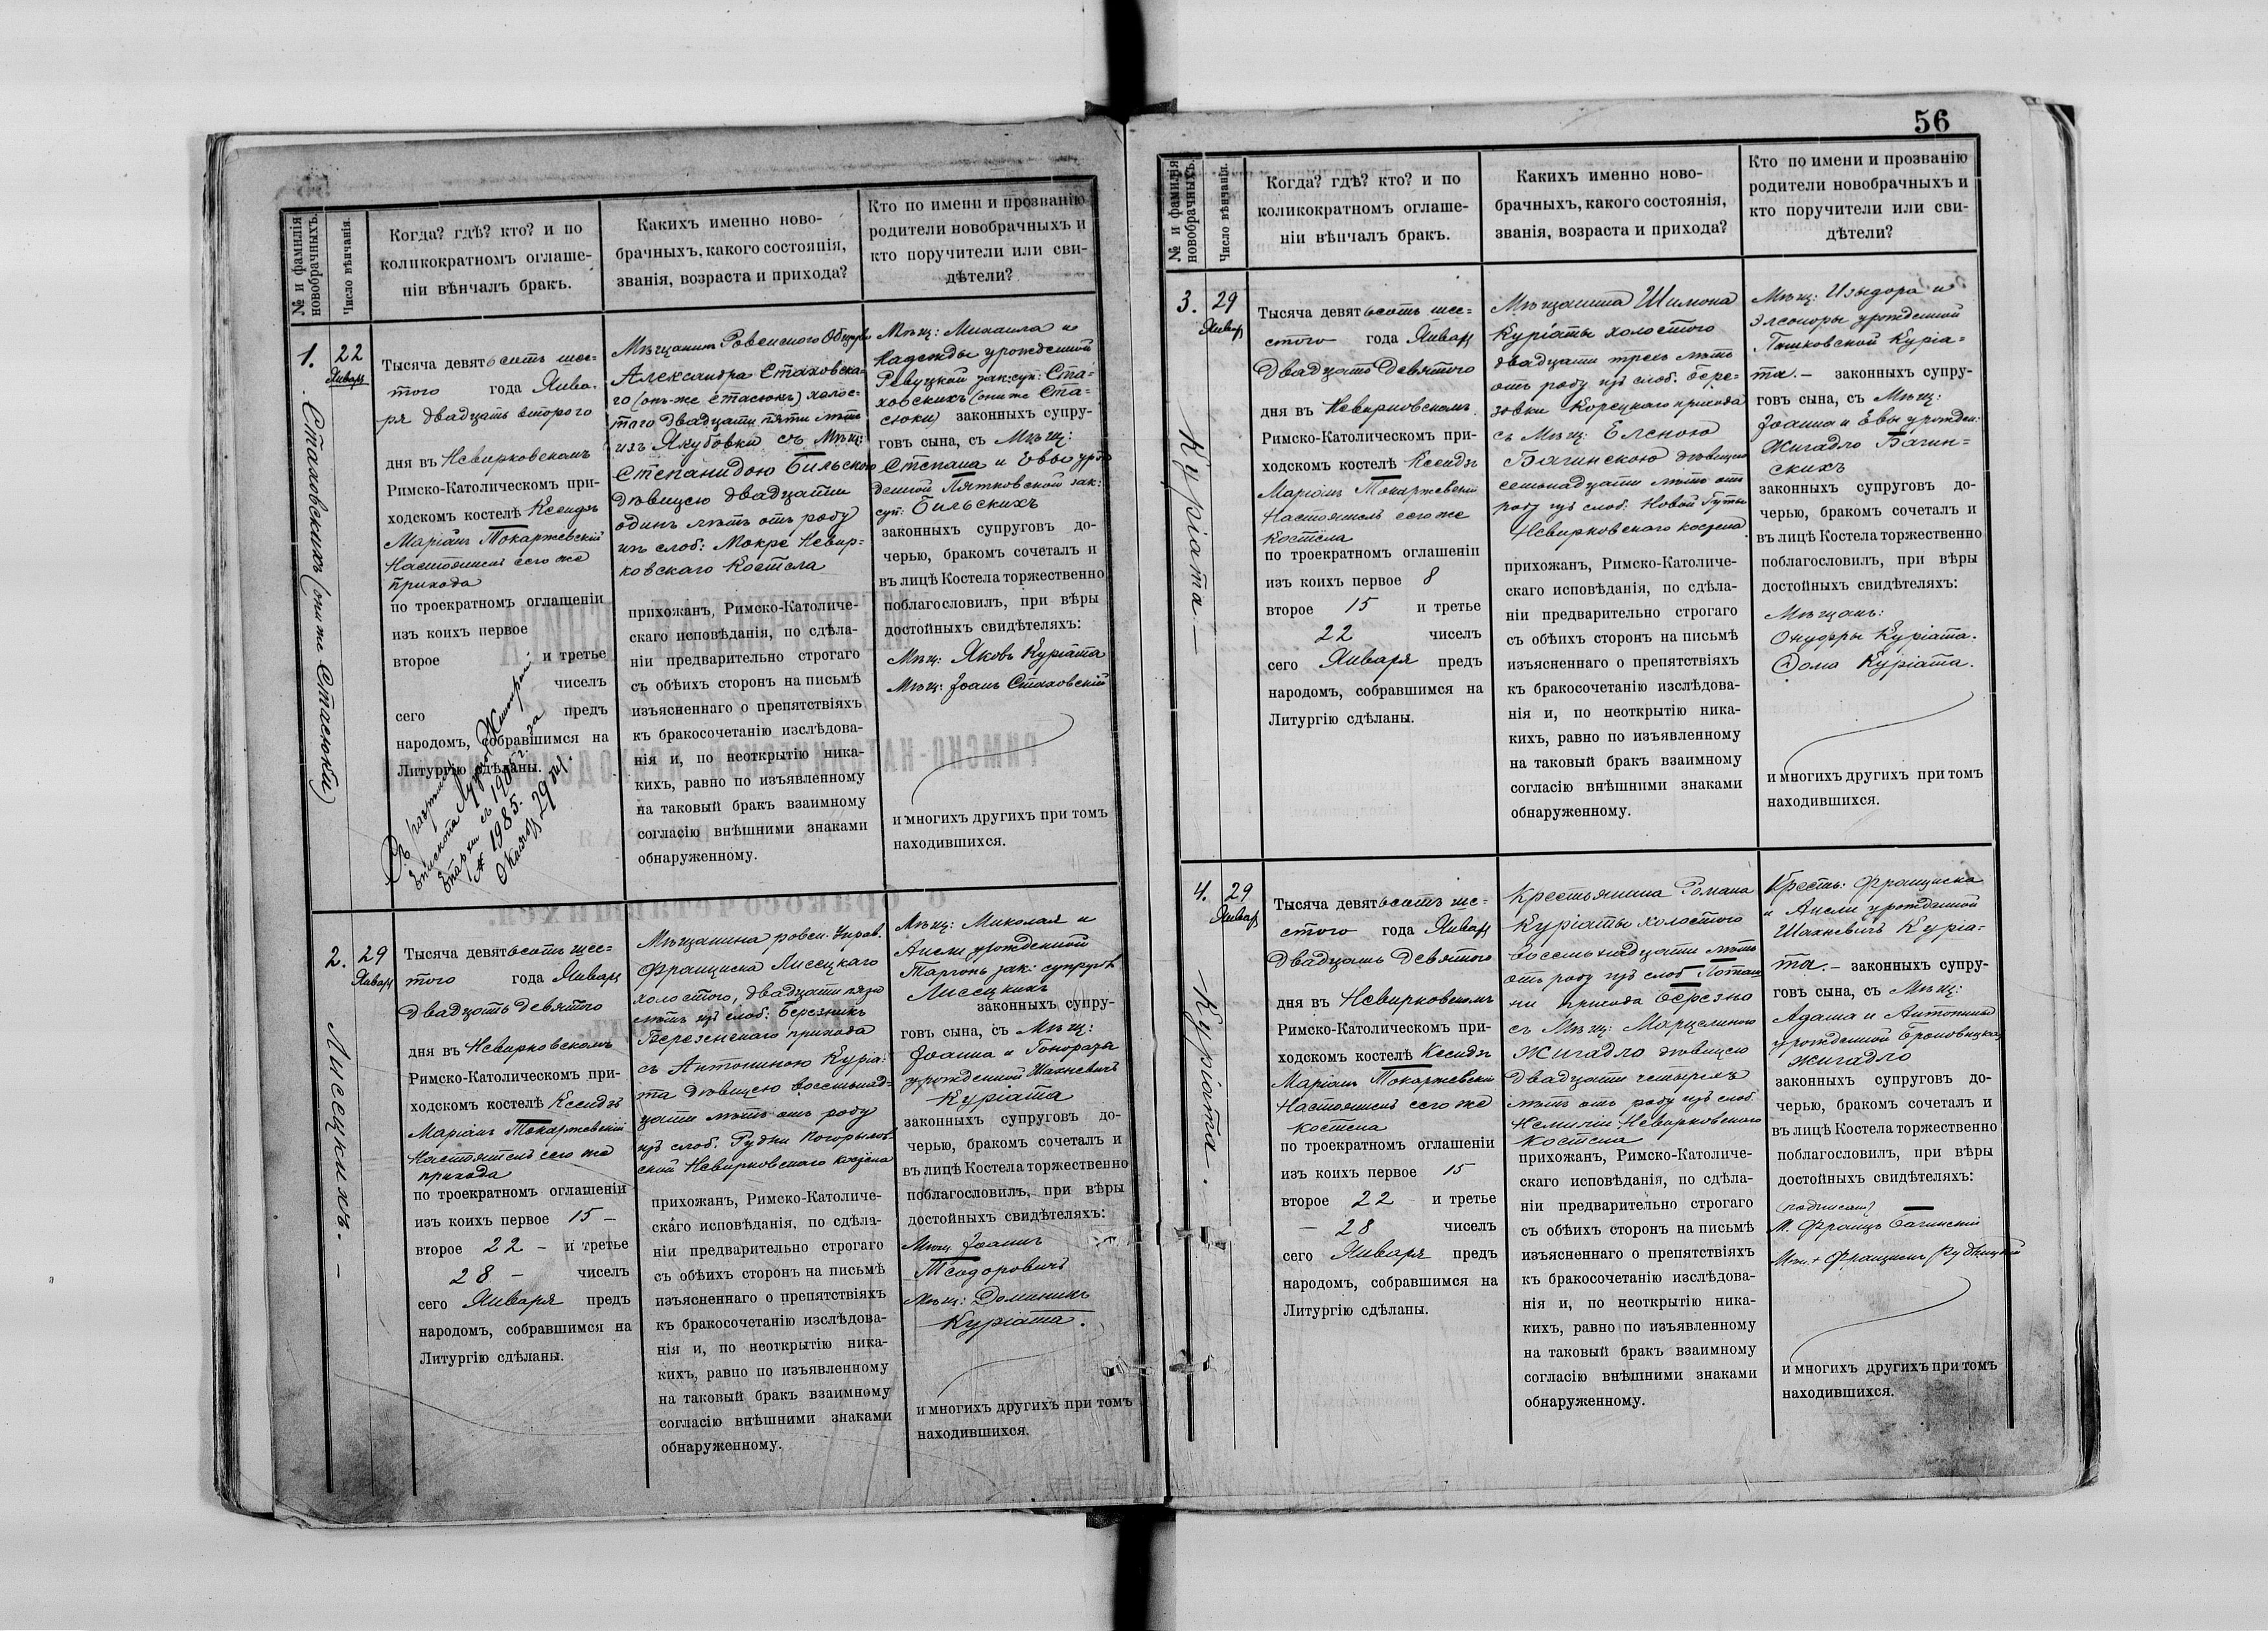 № и фамилія новобрачныхъ.
Число вѣнчанія.
Когда? гдѣ? кто? и по
коликократномъ оглаше-
ніи вѣнчалъ бракъ.
Какихъ именно ново-
брачныхъ, какого состоянія,
званія, возраста и прихода?
Кто по имени и прозванію
родители новобрачныхъ и
кто поручители или сви-
дѣтели?
1.
22
Январ
Стаховскихъ (они же Стасюки)
Тысяча девятьсотъ шес-
того года Янва-
ря двадцать второго
дня въ Невирковскомъ
Римско-Католическомъ при-
ходскомъ костелѣ Ксендзъ
Маріанъ Токаржевскій
Настоятель сего же
прихода
по троекратномъ оглашеніи
изъ коихъ первое
второе и третье
чиселъ
сего предъ
народомъ, собравшимся на
Литургію сдѣланы.
Епископа Луцко Житомирской
Епархіи съ 1905 г. за
№ 1985.
Мѣщанина Ровенского
Александра Стаховска-
го (онъ-же Стасюкъ) холос-
того двадцати пяти лѣтъ
изъ Якубовки съ Мѣщ:
Степанидою Бильскою
дѣвицею двадцати
одинъ лѣтъ отъ роду
изъ слоб: Мокре Невир-
ковскаго Костела
прихожанъ, Римско-Католиче-
скаго исповѣданія, по сдѣла-
ніи предварительно строгаго
съ обѣихъ сторонъ на письмѣ
изъясненнаго о препятствіяхъ
къ бракосочетанію изслѣдова-
нія и, по неоткрытію ника-
кихъ, равно по изъявленному
на таковый бракъ взаимному
согласію внѣшними знаками
обнаруженному.
Мѣщ: Михаила и
Надежды урожденной
Ревуцкой зак: суп: Ста-
ховскихъ (они же Ста-
сюки) законныхъ супру-
говъ сына, съ Мѣщ:
Степана и Евы урож
денной Пятковской зак:
суп: Бильскихъ
законныхъ супруговъ до-
черью, бракомъ сочеталъ и
въ лицѣ Костела торжественно
поблагословилъ, при вѣры
достойныхъ свидѣтеляхъ:
Мѣщ: Яковъ Куріата
Мѣщ: Іоанъ Стаховскій
и многихъ другихъ при томъ
находившихся.
2.
29
Январ
Лисецкихъ. —
Тысяча девятьсотъ шес-
того года Январ
двадцать девятого
дня въ Невирковскомъ
Римско-Католическомъ при-
ходскомъ костелѣ Ксендзъ
Маріанъ Токаржевскій
Настоятель сего же
прихода
по троекратномъ оглашеніи
изъ коихъ первое 15 —
второе 22 — и третье
28 — чиселъ
сего Января предъ
народомъ, собравшимся на
Литургію сдѣланы.
Мѣщанина ровен. Управ.
Франциска Лисецкаго
холостого, двадцати
лѣтъ изъ слоб: Березникъ
Березненскаго прихода
съ Антониною Куріа-
та дѣвицею восемьнад-
цати лѣтъ отъ роду
изъ слоб. Рудни Погорылов-
ской Невирковского костела
прихожанъ, Римско-Католиче-
скаго исповѣданія, по сдѣла-
ніи предварительно строгаго
съ обѣихъ сторонъ на письмѣ
изъясненнаго о препятствіяхъ
къ бракосочетанію изслѣдова-
нія и, по неоткрытію ника-
кихъ, равно по изъявленному
на таковый бракъ взаимному
согласію внѣшними знаками
обнаруженному.
Мѣщ: Миколая и
Анели урожденной
Таргонь зак: супругов
Лисецкихъ
законныхъ супру-
говъ сына, съ Мѣщ:
Іоанна и Гонората
урожденной Шахневичъ
Куріата
законныхъ супруговъ до-
черью, бракомъ сочеталъ и
въ лицѣ Костела торжественно
поблагословилъ, при вѣры
достойныхъ свидѣтеляхъ:
Мѣщ. Іоанъ
Теодоровичъ
Мѣщ: Доминикъ
Куріата.
и многихъ другихъ при томъ
находившихся.
56
№ и фамилія новобрачныхъ.
Число вѣнчанія.
Когда? гдѣ? кто? и по
коликократномъ оглаше-
ніи вѣнчалъ бракъ.
Какихъ именно ново-
брачныхъ, какого состоянія,
званія, возраста и прихода?
Кто по имени и прозванію
родители новобрачныхъ и
кто поручители или сви-
дѣтели?
3.
29
Январ
Куріата. —
Тысяча девятьсотъ шес-
стого года Январ
Двадцать Девятого
дня въ Невирковскомъ
Римско-Католическомъ при-
ходскомъ костелѣ Ксендзъ
Маріанъ Токаржевскій
Настоятель сего же
костела
по троекратномъ оглашеніи
изъ коихъ первое 8
второе 15 и третье
22 чиселъ
сего Января предъ
народомъ, собравшимся на
Литургію сдѣланы.
Мѣщанина Шимона
Куріаты холостого
двадцати трехъ лѣтъ
отъ роду изъ слоб. Бере-
зовки Корецкаго прихода
съ Мѣщ: Еленою
Багинскою дѣвицею
семнадцати лѣтъ отъ
роду изъ слоб: Новой Гуты
Невирковскаго костела
прихожанъ, Римско-Католиче-
скаго исповѣданія, по сдѣла-
ніи предварительно строгаго
съ обѣихъ сторонъ на письмѣ
изъясненнаго о препятствіяхъ
къ бракосочетанію изслѣдова-
нія и, по неоткрытію ника-
кихъ, равно по изъявленному
на таковый бракъ взаимному
согласію внѣшними знаками
обнаруженному.
Мѣщ: Изыдора и
Элеоноры урожденной
Пашковской Куріа-
та. — законныхъ супру-
говъ сына, съ Мѣщ:
Іоанна и Евы урожден:
Жигадло Багин-
скихъ
законныхъ супруговъ до-
черью, бракомъ сочеталъ и
въ лицѣ Костела торжественно
поблагословилъ, при вѣры
достойныхъ свидѣтеляхъ:
Мѣщан:
Онуфры Куріата.
Куріата.
и многихъ другихъ при томъ
находившихся.
4.
29
Январ
Куріата.
Тысяча девятьсотъ ше-
стого года Январ
Двадцать Девятого
дня въ Невирковскомъ
Римско-Католическомъ при-
ходскомъ костелѣ Ксендзъ
Маріанъ Токаржевскій
Настоятель сего же
костела
по троекратномъ оглашеніи
изъ коихъ первое 15
второе 22 и третье
— 28 чиселъ
сего Января предъ
народомъ, собравшимся на
Литургію сдѣланы.
Крестьянина Романа
Куріаты холостого
восемьнадцати лѣтъ
отъ роду изъ слоб Поташ
ни прихода Березно
съ Мѣщ: Марцелиною
Жигадло дѣвицею
двадцати четырехъ
лѣтъ отъ роду изъ слоб.
Немили Невирковскаго
Костела
прихожанъ, Римско-Католиче-
скаго исповѣданія, по сдѣла-
ніи предварительно строгаго
съ обѣихъ сторонъ на письмѣ
изъясненнаго о препятствіяхъ
къ бракосочетанію изслѣдова-
нія и, по неоткрытію ника-
кихъ, равно по изъявленному
на таковый бракъ взаимному
согласію внѣшними знаками
обнаруженному.
Кресть: Франциска
и Анели урожденной
Шахневичъ Куріа-
та. — законныхъ супру-
говъ сына, съ Мѣщ:
Адама и Антонины
урожденной
Жигадло
законныхъ супруговъ до-
черью, бракомъ сочеталъ и
въ лицѣ Костела торжественно
поблагословилъ, при вѣры
достойныхъ свидѣтеляхъ:
М. Францъ Багинскій
и многихъ другихъ при томъ
находившихся.